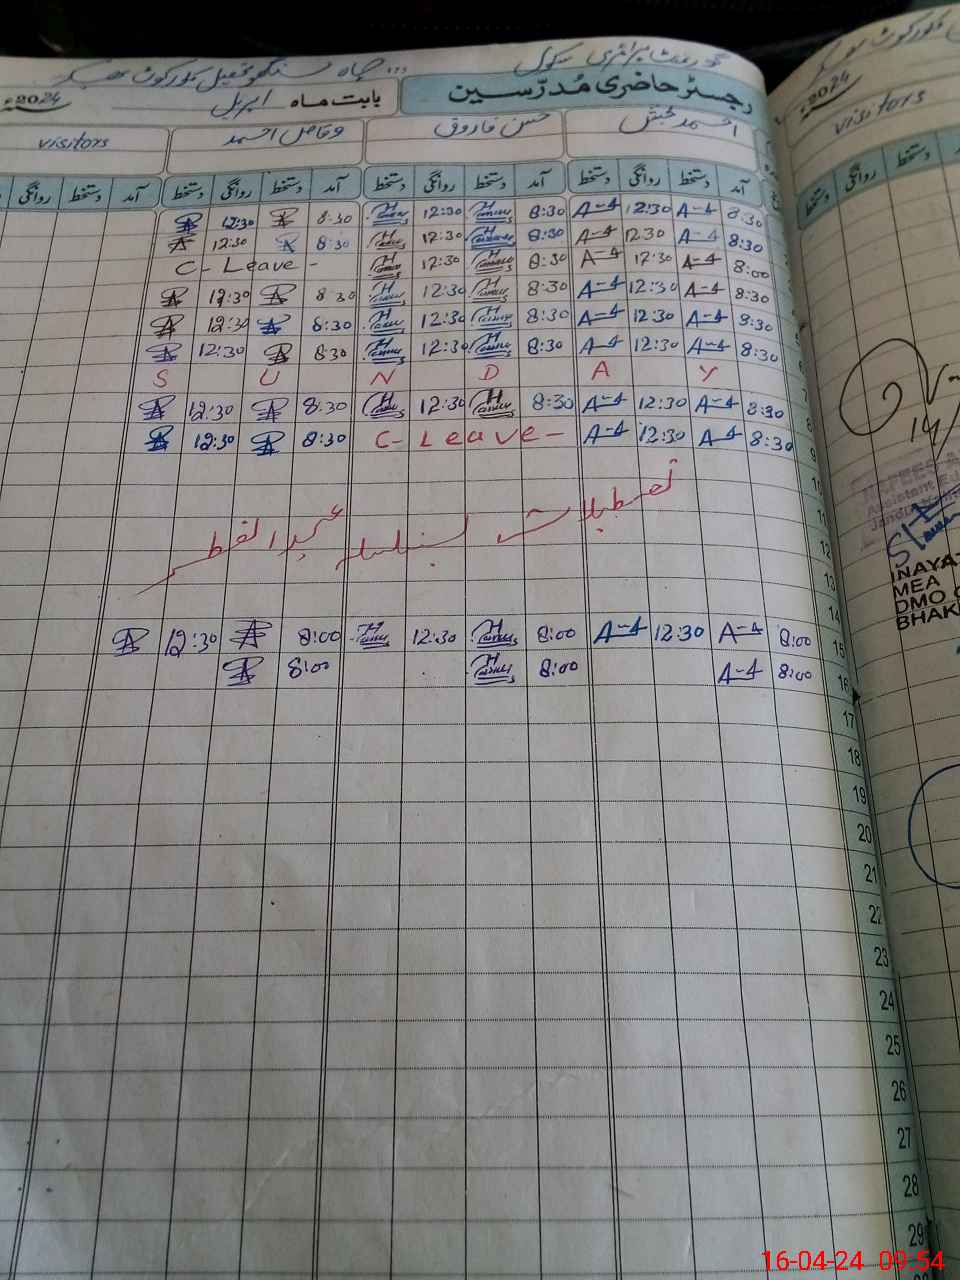 گورنمنٹ پرائمری سکول چاہ
رجسٹر حاضری مُدرّسین بابت ماہ اپریل 2024ء
احمد بخش حسن فاروق وقاص احمد visitors
آمد دستخط روانگی دستخط آمد دستخط روانگی دستخط آمد دستخط روانگی دستخط آمد دستخط روانگی
8:30 A-4 12:30 A-4 8:30 12:30 8:30 12:30
8:30 A-4 12:30 A-4 8:30 12:30 8:30 12:30
8:00 A-4 12:30 A-4 8:30 12:30 C-Leave-
8:30 A-4 12:30 A-4 8:30 12:30 8:30 12:30
8:30 A-4 12:30 A-4 8:30 12:30 8:30 12:30
8:30 A-4 12:30 A-4 8:30 12:30 8:30 12:30
S U N D A Y
8:30 A-4 12:30 A-4 8:30 12:30 8:30 12:30
9 8:30 A-4 12:30 A-4 C-Leave- 8:30 12:30
10
11
تعطیلات بسلسلہ عید الفطر
12
13
14
15 8:00 A-4 12:30 A-4 8:00 12:30 8:00 12:30
16 8:00 A-4 8:00 8:00
17
18
19
20
21
22
23
24
25
26
27
28
29
2024
visitors
روانگی دستخط
14/
Assistant Ed
INAYA
MEA
DMO
BHAK
16-04-24 09:54